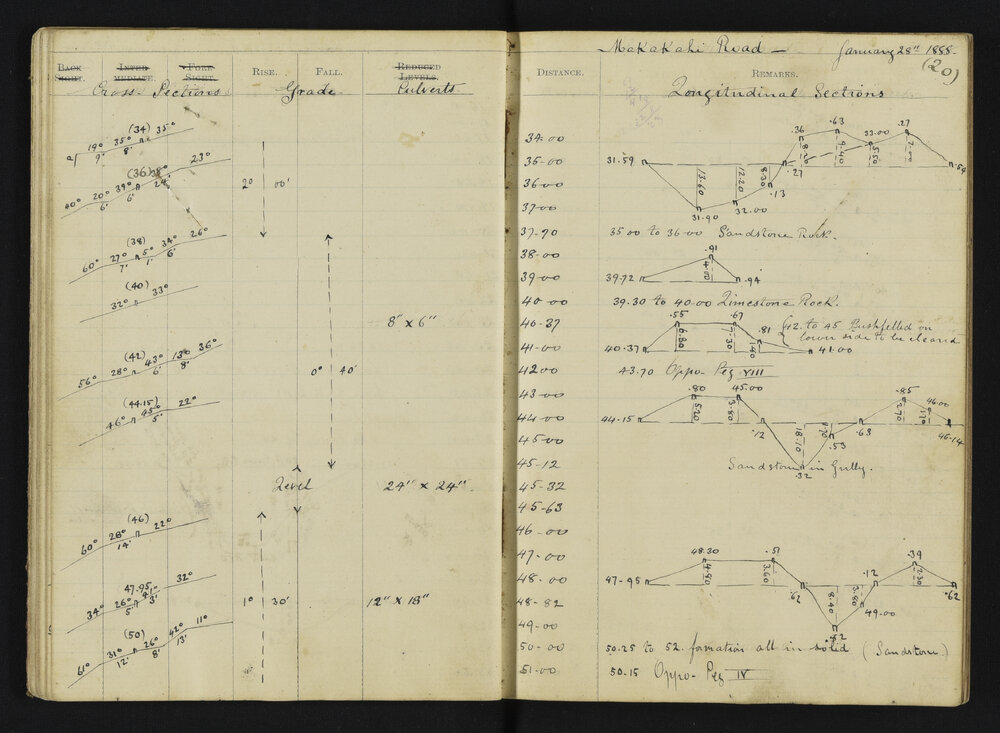 BACK SIGHT. INTER MEDIATE. FORE SIGHT. RISE. FALL. REDUCED LEVELS.
Cross Sections Grade Culverts
(34)
19° 35° 35°
9' 8'
(36)
40° 20° 39° 24° 23°
6' 6'
2° 00'
(38)
60° 27° 5° 34° 26°
7' 1' 6'
(40)
32° 33°
8" x 6"
(42)
56° 28° 43° 13° 36°
6' 8'
0° 40'
(44.15)
46° 45° 22°
5'
Level 24" x 24"
(46)
60° 28° 22°
14'
47.95
34° 26° 41° 32°
5' 3'
1° 30' 12" x 18"
(50)
61° 31° 26° 42° 11°
12' 8' 13'
Makakahi Road — January 28th 1888.
(20)
DISTANCE. REMARKS.
Longitudinal Sections
34.00
35.00
36.00
37.00
37.70
38.00
39.00
40.00
40.37
41.00
42.00
43.00
44.00
45.00
45.12
45.32
45.63
46.00
47.00
48.00
48.82
49.00
50.00
51.00
.36 .63 33.00 .27
8.20 9.40 5.50 7.00
31.59 .27 .54
13.60 12.20 8.30 .13
31.90 32.00
35.00 to 36.00 Sandstone Rock.
.91
4.70
39.72 .94
39.30 to 40.00 Limestone Rock.
.55 .67 .81
6.80 7.30 1.40
42. to 45 Bushfelled on
lower side to be cleared
40.37 41.00
43.70 Oppo- Peg VIII
.80 45.00 .85 46.00
5.20 3.80 2.70 1.70
44.15 .12 .63 46.14
18.10 1.70 .53
.32
Sandstone in Gully.
48.30 .51 .39
4.80 3.60 2.30
47.95 .62 .12 .62
8.40 3.80 49.00
.82
50.25 to 52. formation all in solid (Sandstone)
50.15 Oppo- Peg IV